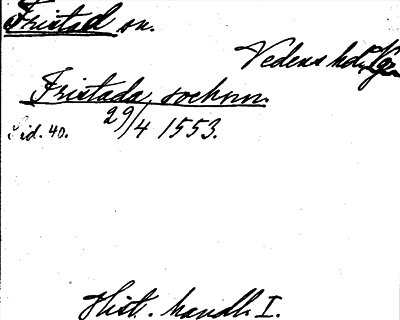 Fristad sn.
Vedens hd, Vgn
Fristada sochnn.
Sid. 40. 29/4 1553.
Hist. handl. I.